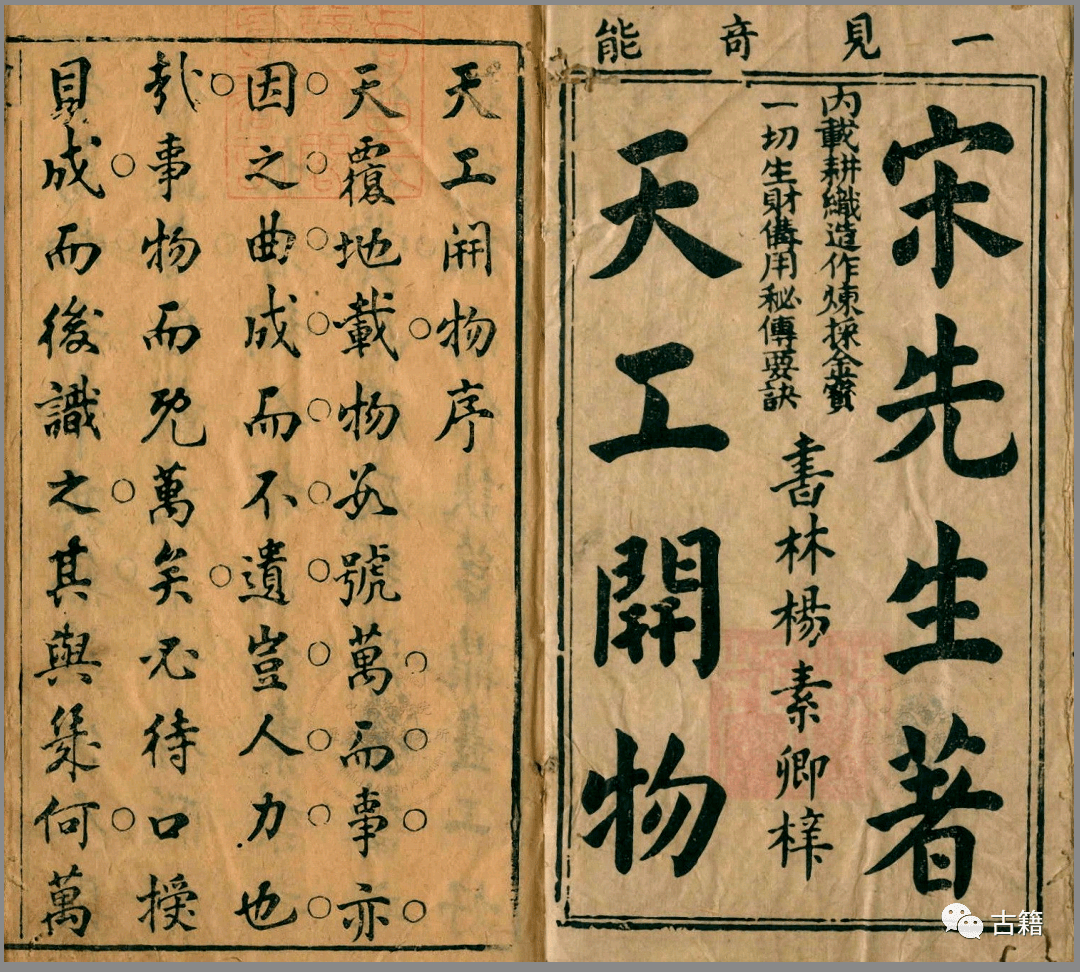 一見奇能
宋先生著
內載耕織造作煉採金寶
一切生財備用秘傳要訣
書林楊素卿梓
天工開物
天工開物序
天覆地載物數號萬而事亦
因之曲成而不遺豈人力也
哉事物而既萬矣必待口授
目成而後識之其與幾何萬
古籍